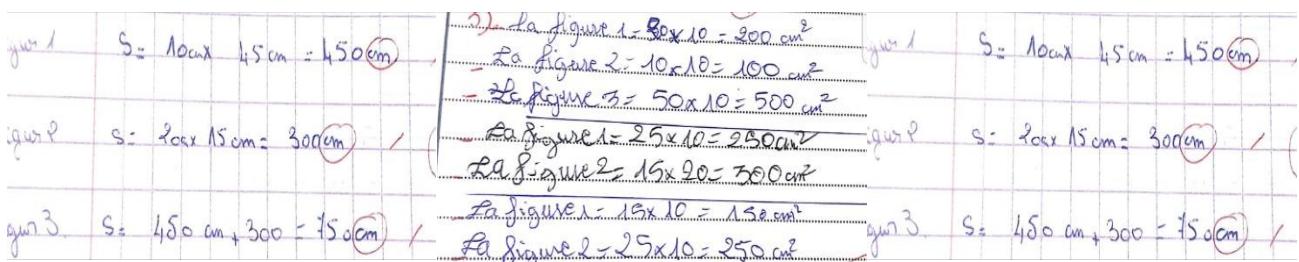 S = 10cm x 45 cm = 450 cm
S = 20cm x 15 cm = 300 cm
gur 3. S = 450 cm + 300 = 750 cm
La figure 1 = 20x10 = 200 cm²
- La figure 2 = 10x10 = 100 cm²
- La figure 3 = 50x10 = 500 cm²
- La figure 1 = 25x10 = 250 cm²
La figure 2 = 15x20 = 300 cm²
- La figure 1 = 15x10 = 150 cm²
- La figure 2 = 25x10 = 250 cm²
S = 10cm x 45 cm = 450 cm
S = 20cm x 15 cm = 300 cm
gur 3. S = 450 cm + 300 = 750 cm